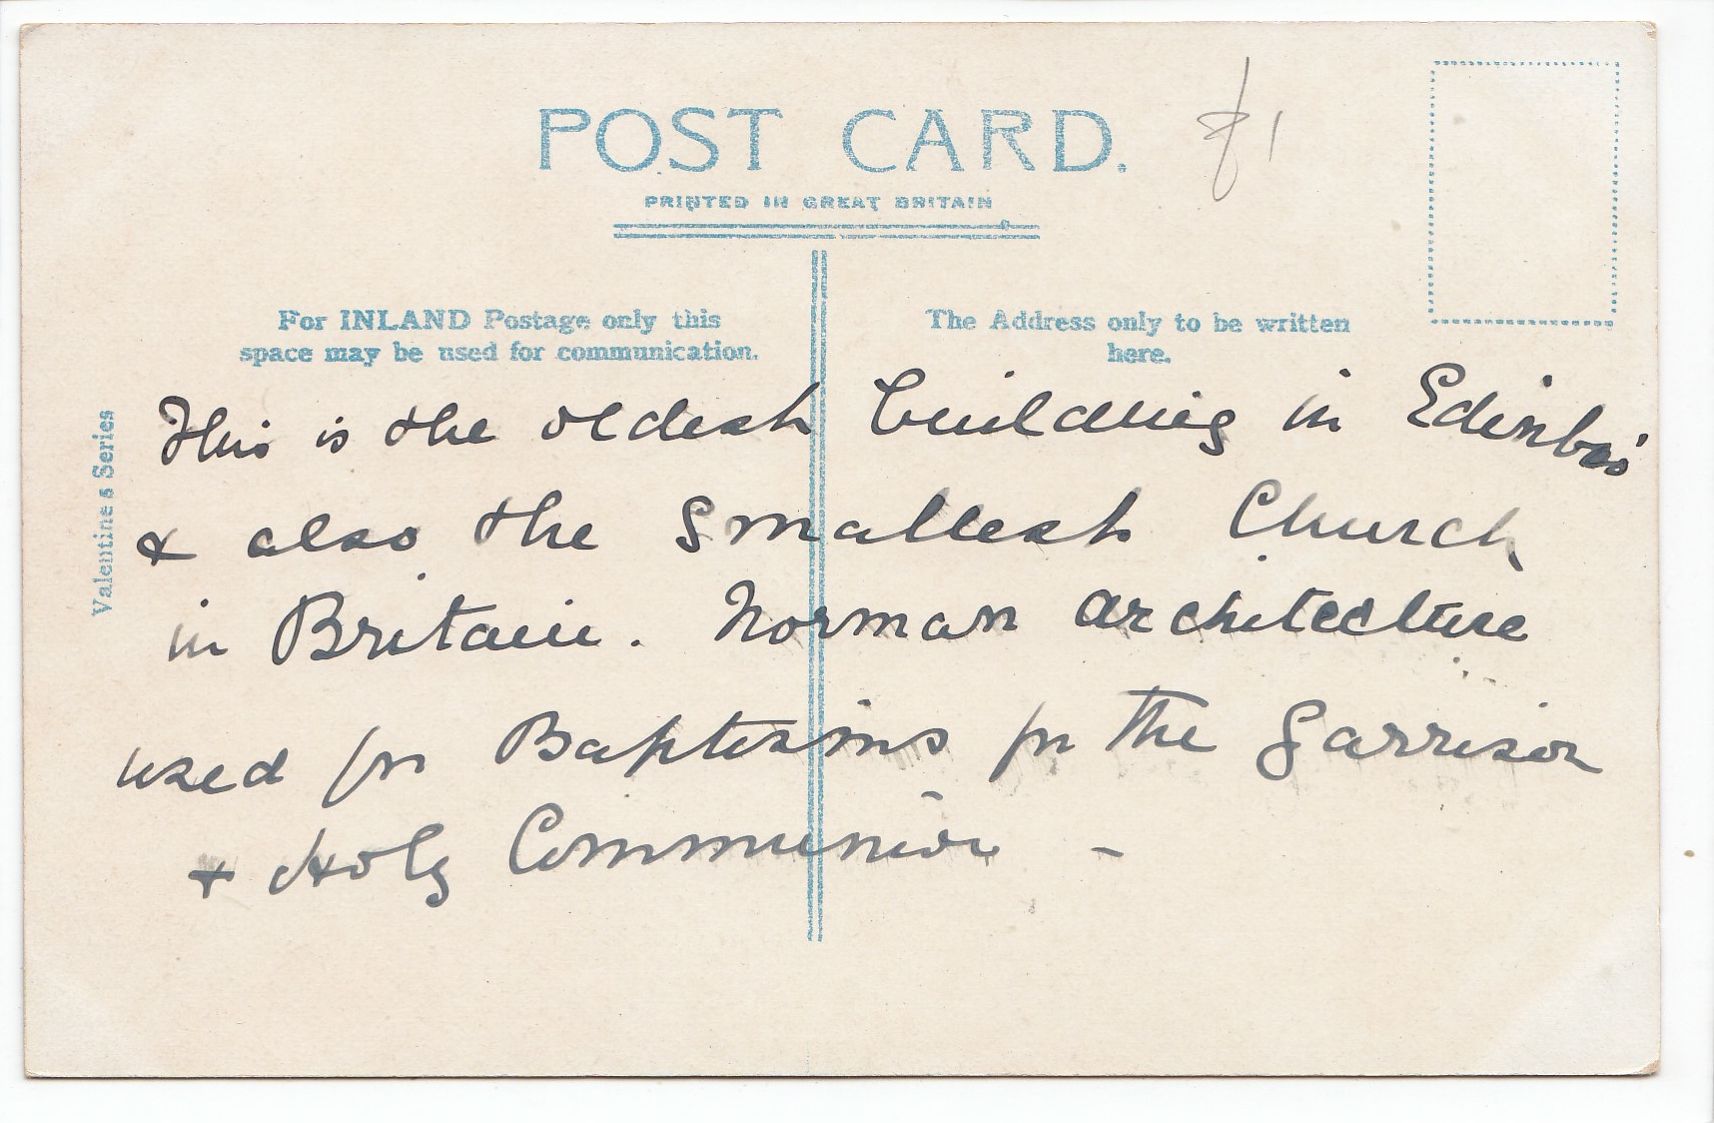 POST CARD.
PRINTED IN GREAT BRITAIN
For INLAND Postage only this
space may be used for communication.
The Address only to be written
here.
Valentine's Series
This is the oldest building in Edinbro'
& also the smallest Church
in Britain. Norman architecture
used for Baptisms for the Garrison
& Holy Communion -